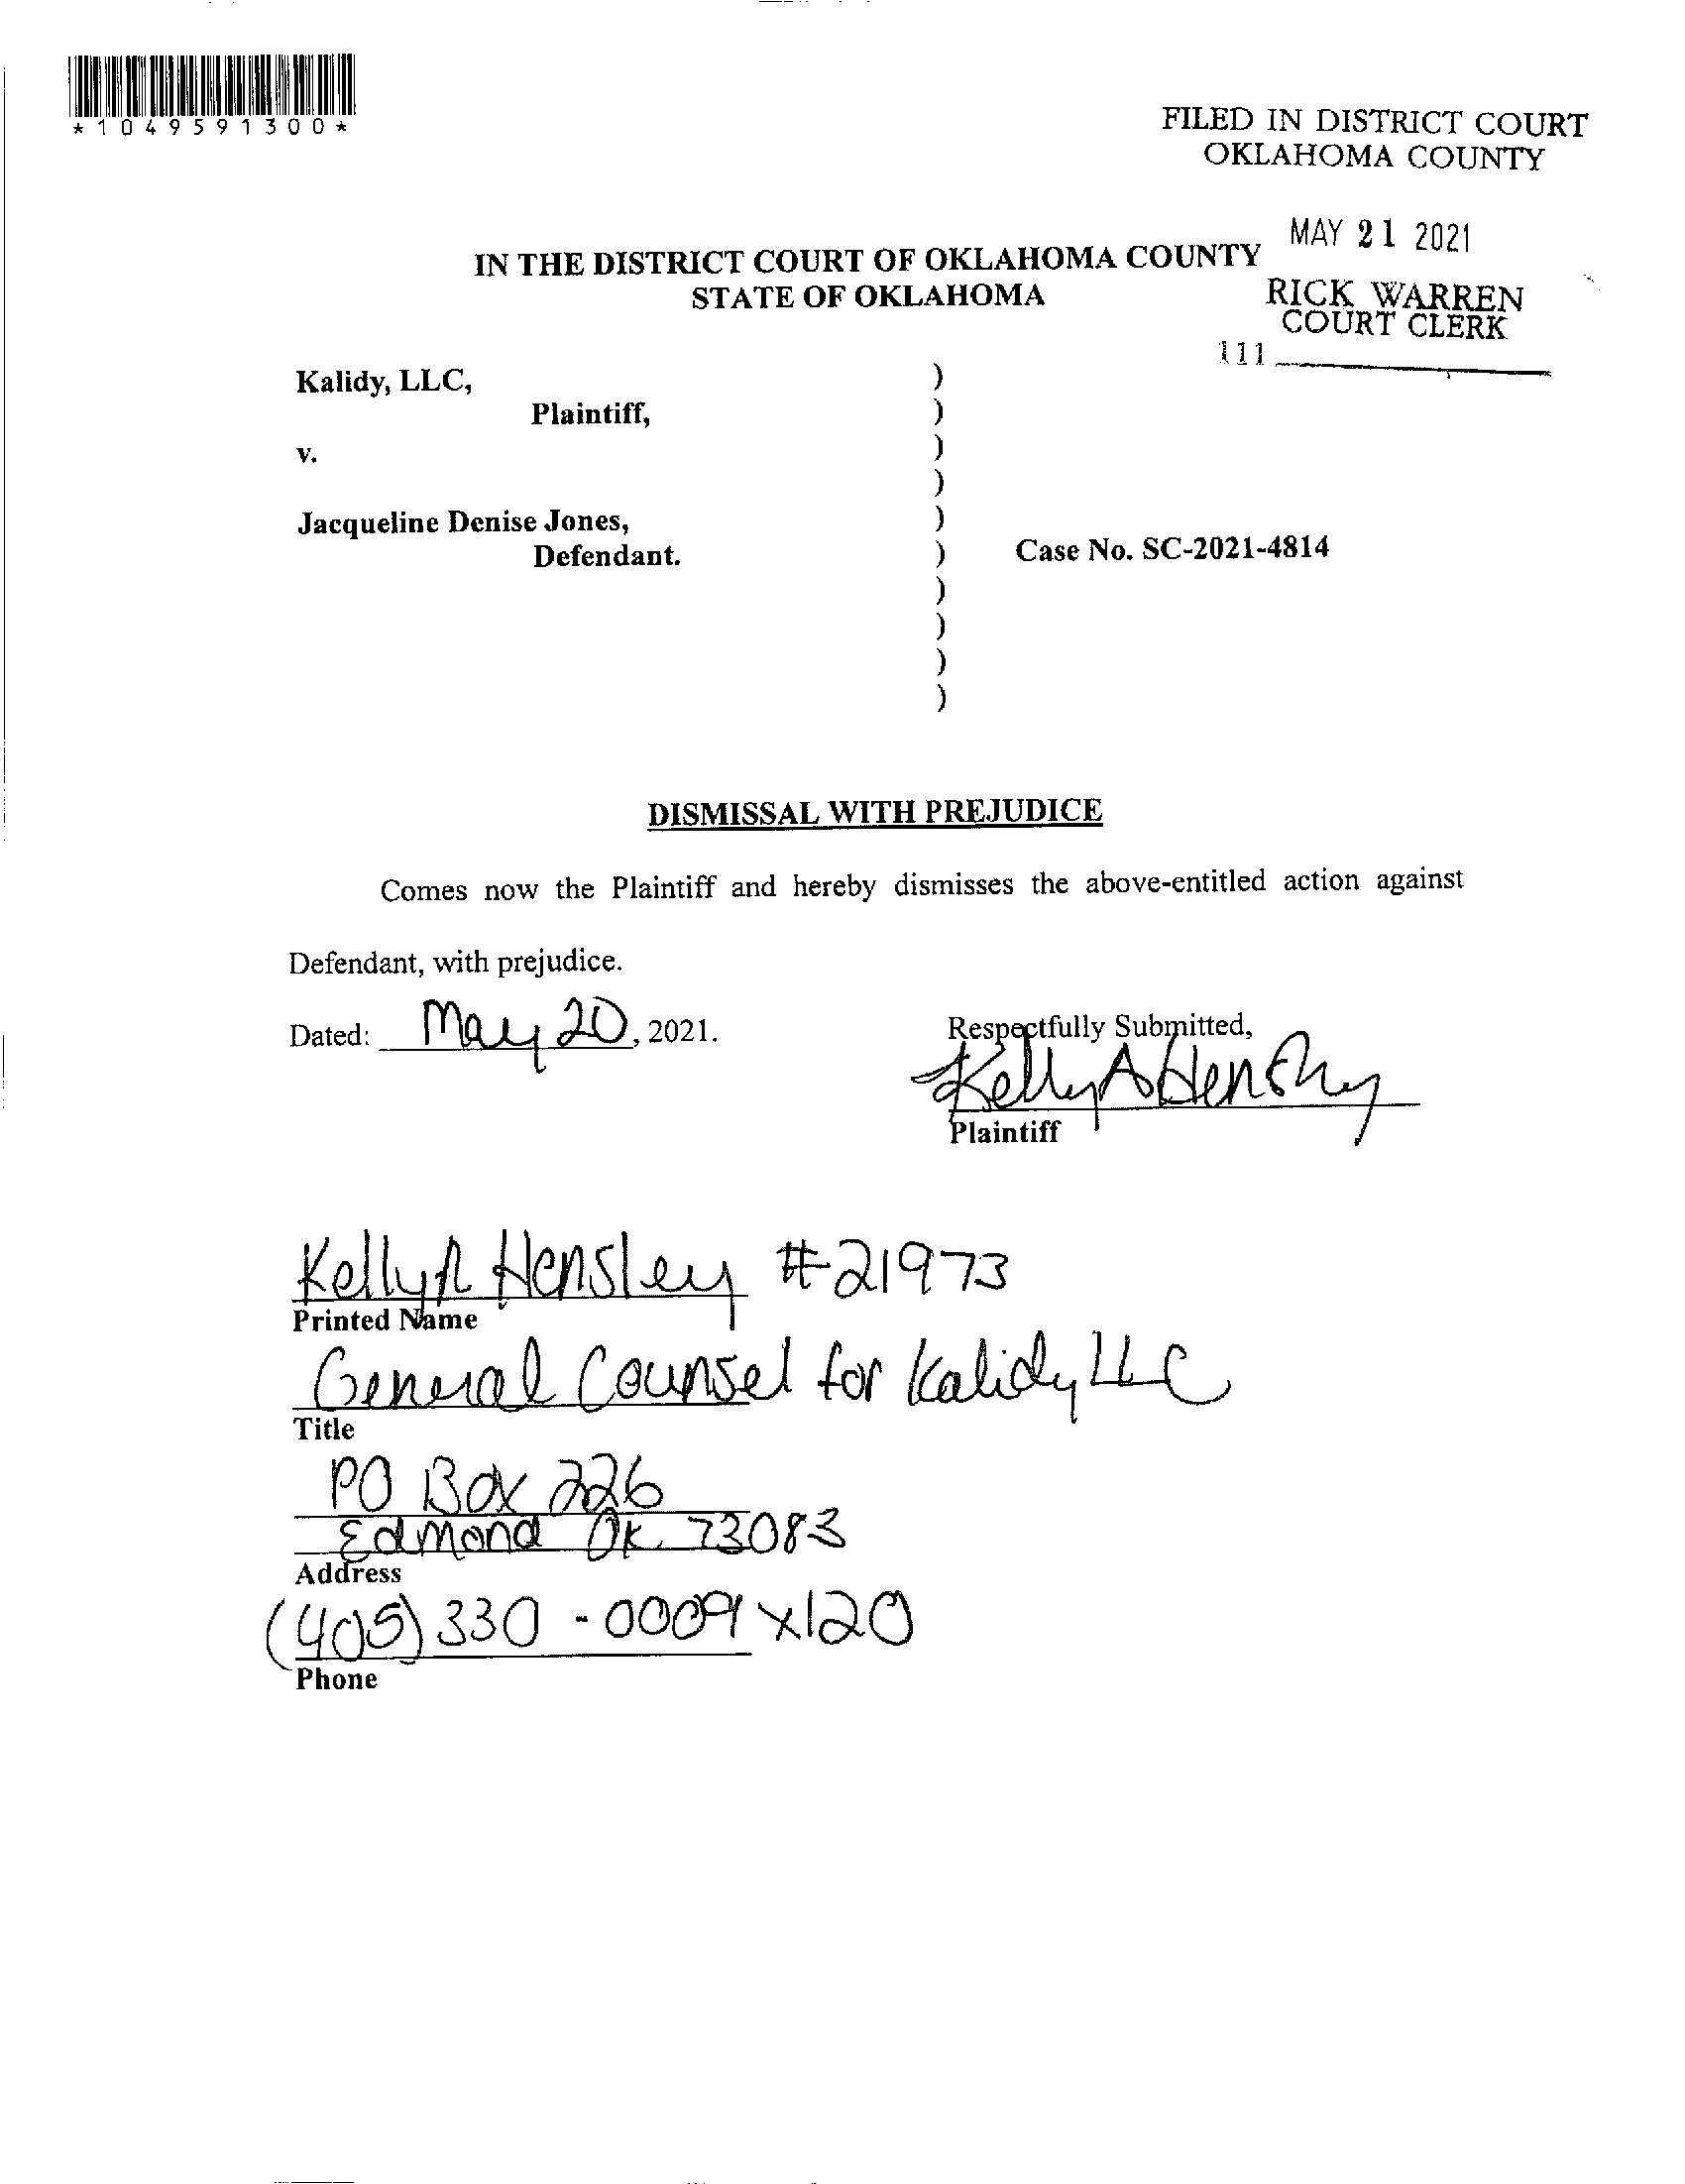 *1049591300*
FILED IN DISTRICT COURT
OKLAHOMA COUNTY
MAY 21 2021
RICK WARREN
COURT CLERK
111
IN THE DISTRICT COURT OF OKLAHOMA COUNTY
STATE OF OKLAHOMA
Kalidy, LLC, )
Plaintiff, )
v. )
)
Jacqueline Denise Jones, )
Defendant. ) Case No. SC-2021-4814
)
)
)
)
DISMISSAL WITH PREJUDICE
Comes now the Plaintiff and hereby dismisses the above-entitled action against
Defendant, with prejudice.
Dated: May 20, 2021. Respectfully Submitted,
Kelly A Hensley
Plaintiff
Kelly A Hensley #21973
Printed Name
General Counsel for Kalidy LLC
Title
PO Box 226
Edmond OK 73083
Address
(405) 330-0009 x120
Phone